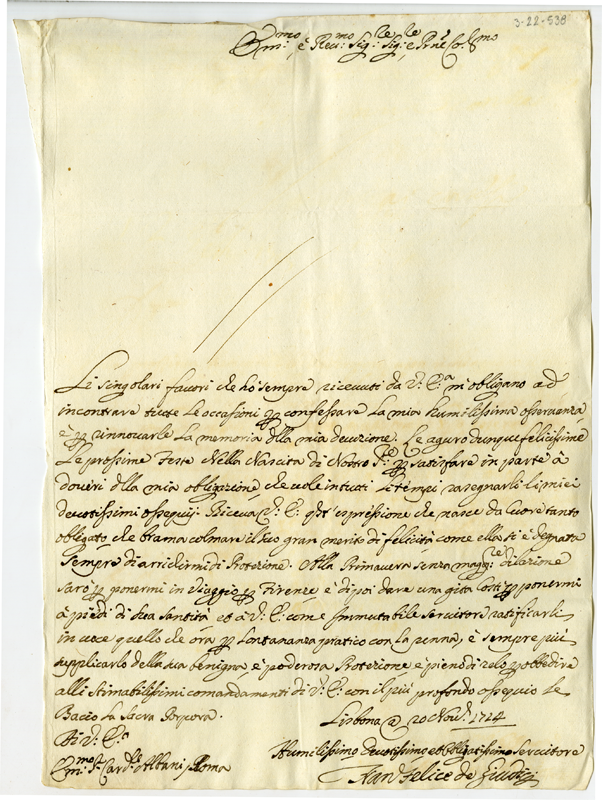 3-22-538
Em:mo e Rev:mo Sig:re Sig:re e Prne Col:mo
Li singolari favori che hò sempre ricevuti da V: E:a m'obligano ad
incontrare tutte le occasioni per confessare la mia humilissima osservanza,
è per rinnovarle la memoria della mia devozione. Le aguro dunque felicissime
le prossime Feste Nella Nascita di Nostro S:re per satisfare in parte à
doveri della mia obligazione, che vole in tutti li tempi rasegnarli li miei
devotissimi ossequij. Riceva V: E: questa espressione che nasce da Cuore tanto
obligato, che brama colmare il suo gran merito di felicità, come ella si è degnata
sempre di arridirmi di Protezione. Alla Primavera senza magg:re dilazione
sarò per ponermi in Viaggio per Firenze è di poi dare una gita costì per ponermi
à piedi di Sua Santità et à V: E: come Immutabile Servitore ratificarli
in voce quello che ora per lontananza pratico con la penna, è sempre più
supplicarlo della sua benigna, è poderosa Protezione è pieno di zelo per obbedire
alli stimabilissimi comandamenti di V: E: con il più profondo ossequio le
Bacio la Sacra Porpora.
Lisbona 20 Nov: 1714
Di V: E:a
Humilissimo Devotissimo et Obligatissimo Servitore
Em:mo S:r Card:le Albani Roma
Felice de Giudici